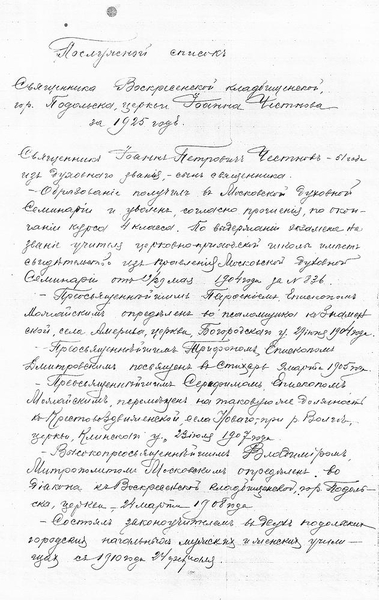 Послужной списокъ
Священника Воскресенской кладбищенской,
гор. Подольска, церкви Іоанна Честнова
за 1925 годъ.
Священникъ Іоаннъ Петровичъ Честновъ – 51 года
изъ духовнаго званія, – сынъ священника.
– Образованіе получилъ въ Московской духовной
Семинаріи и уволенъ, согласно прошенія, по окон-
чаніи курса 4 класса. По выдержаніи экзамена на
званіе учителя церковно-приходской школы имѣетъ
свидѣтельство изъ Правленія Московской духовной
Семинаріи отъ мая 1904 года за № 836.
– Преосвященнѣйшимъ Парѳеніемъ, Епископомъ
Можайскимъ опредѣленъ во псаломщика къ Знамен-
ской, села Амерева, церкви, Богородскаго у. 1904 года.
– Преосвященнѣйшимъ Трифономъ, Епископомъ
Дмитровскимъ посвященъ въ Стихарь 9 марта 1905 года
– Преосвященнѣйшимъ Серафимомъ, Епископомъ
Можайскимъ, перемѣщенъ на таковую же должность
къ Крестовоздвиженской, села Новаго, при р. Волгѣ,
церкви, Клинскаго у., 23 іюля 1907 года
– Высокопреосвященнѣйшимъ Владиміромъ,
Митрополитомъ Московскимъ опредѣленъ во
діакона къ Воскресенской кладбищенской, гор. Подоль-
ска, церкви – 24 марта 1908 года
– Состоялъ законоучителемъ въ двухъ подольскихъ
городскихъ начальныхъ мужскихъ и женскихъ учили-
щахъ съ 1910 года 24 февраля.